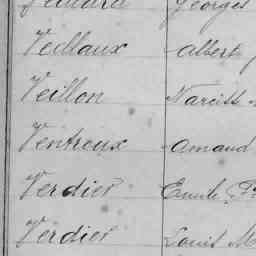 Georges
Veillaux Albert
Veillon Narciss
Ventroux Amand
Verdier Emile
Verdier Louis M